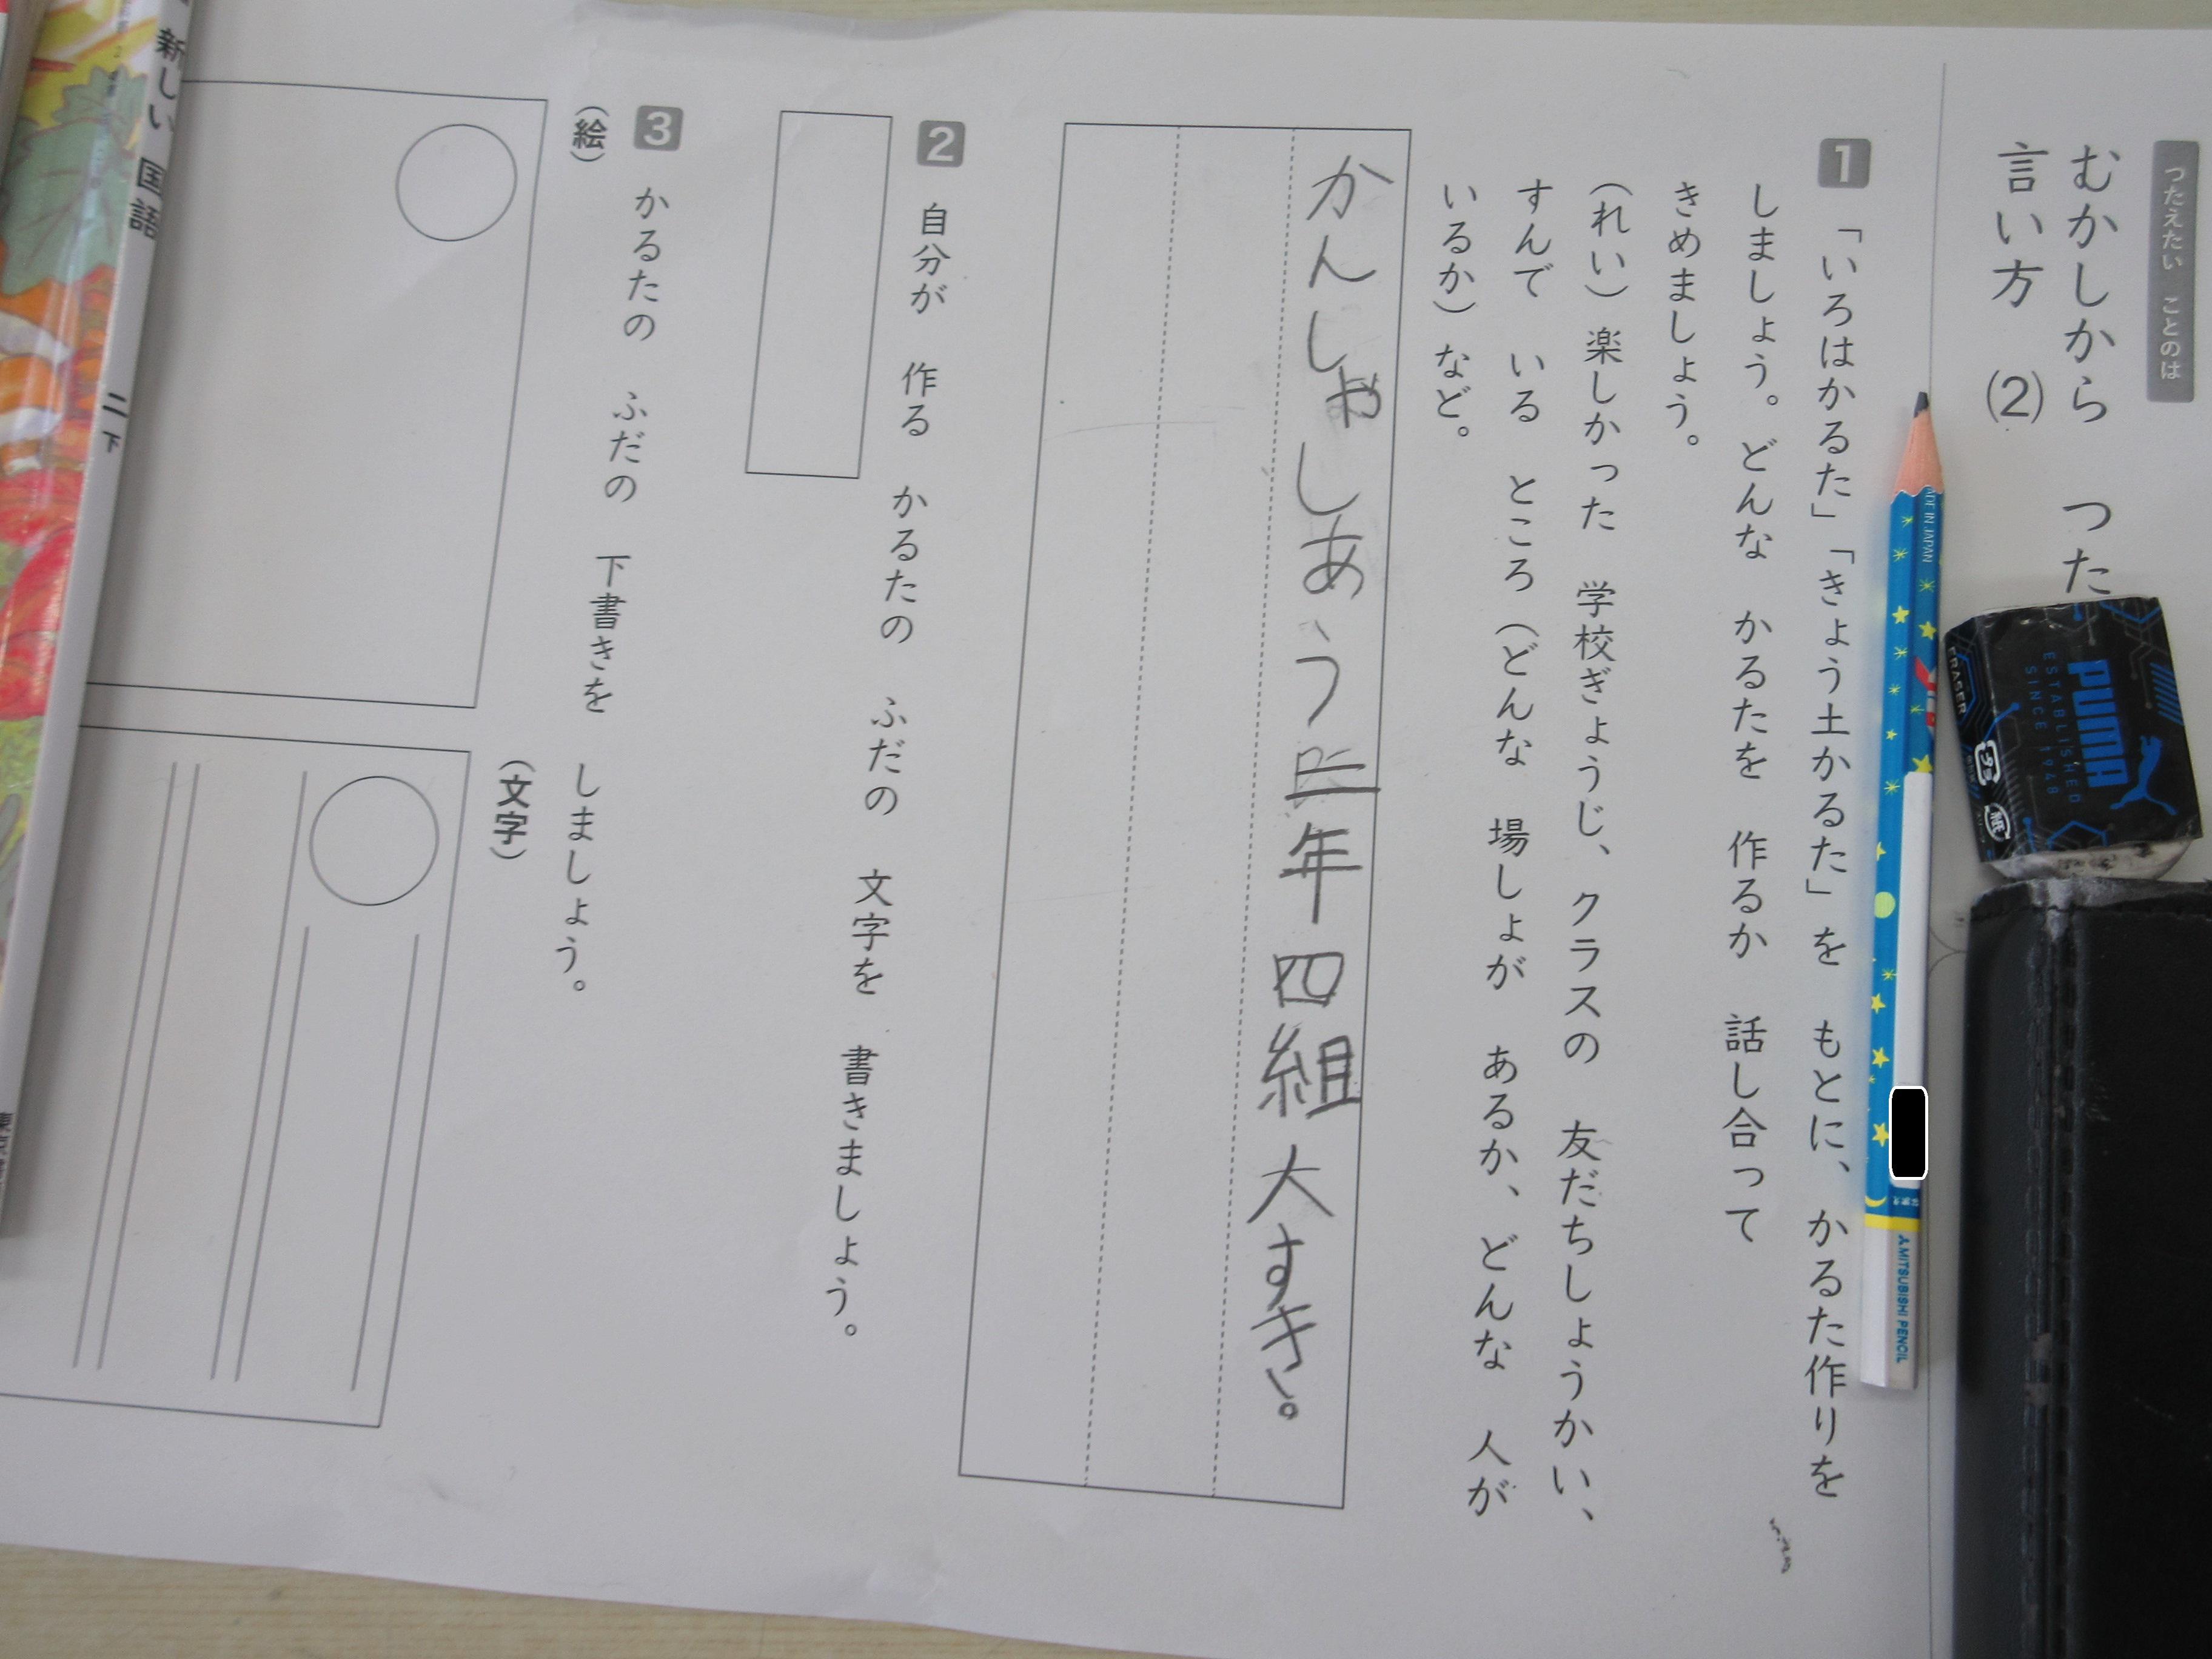 つたえたい ことのは
むかしから つた
言い方 (2)
1 「いろはかるた」「きょう土かるた」を もとに、かるた作りを
しましょう。どんな かるたを 作るか 話し合って
きめましょう。
(れい) 楽しかった 学校ぎょうじ、クラスの 友だちしょうかい、
すんで いる ところ (どんな 場しょが あるか、どんな 人が
いるか) など。
かんしゃしあう二年四組大すき。
2 自分が 作る かるたの ふだの 文字を 書きましょう。
3 かるたの ふだの 下書きを しましょう。
(絵)
(文字)
新しい 国語 二下
MADE IN JAPAN
MITSUBISHI PENCIL
PUMA
ESTABLISHED
SINCE 1948
ERASER